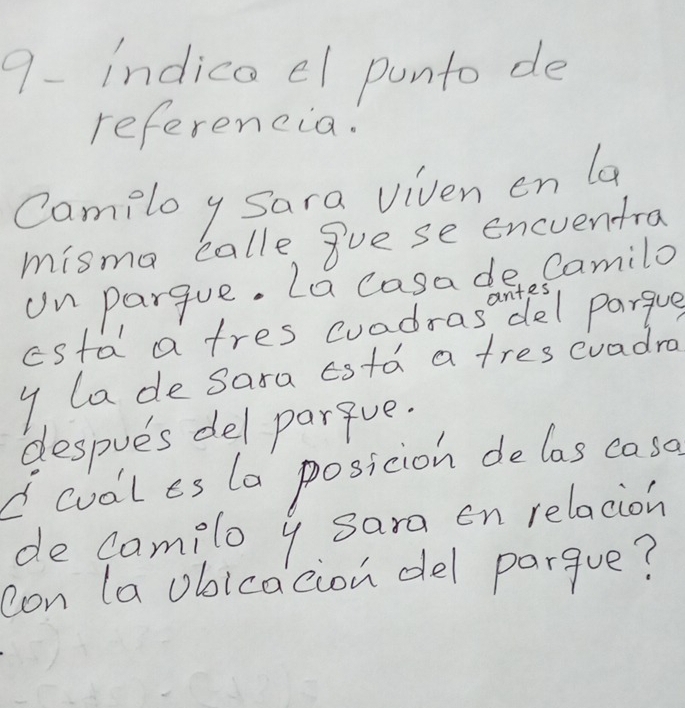 9- indica el punto de
referencia.
Camilo y Sara viven en la
misma calle que se encuentra
un parque. La casa de Camilo
está a tres cuadras antes del parque,
y la de Sara está a tres cuadra
después del parque.
¿cuál es la posición de las casa
de Camilo y Sara en relación
con la ubicación del parque?